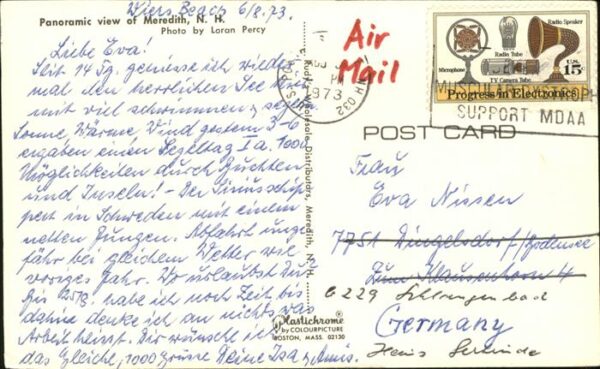 Weirs Beach 6/8.73.
Panoramic view of Meredith, N. H.
Photo by Loran Percy
Liebe Eva!
Seit 14 Tg. genieße ich wieder
den herrlichen See hier
mit viel schwimmen, segeln
Sonne Wärme Wind gestern 3-6
ergaben einen Segeltag Ia. 1000
Möglichkeiten durch Buchten
und Inseln! - Der
in Schweden mit einem
netten Jungen. Abfahrt unge-
fähr bei gleichem Wetter wie
voriges Jahr. Wo urlaubst du?
Bis 25/8. habe ich noch Zeit, bis
dahin denke ich an nichts was
Arbeit heisst. Dir wünsche ich
das Gleiche, 1000 Grüsse Deine Isa
Distributors, Meredith, N. H.
Plastichrome
by COLOURPICTURE
BOSTON, MASS. 02130
Air
Mail
PM
1973
NH 032
Microphone
Radio Tube
Radio Speaker
TV Camera Tube
U.S.
15c
Progress in Electronics
SUPPORT MDAA
POST CARD
Frau
Eva Nissen
7751 Dingelsdorf/Bodensee
Zum Klausenhorn 4
6229 Schlangenbad
Germany
Haus